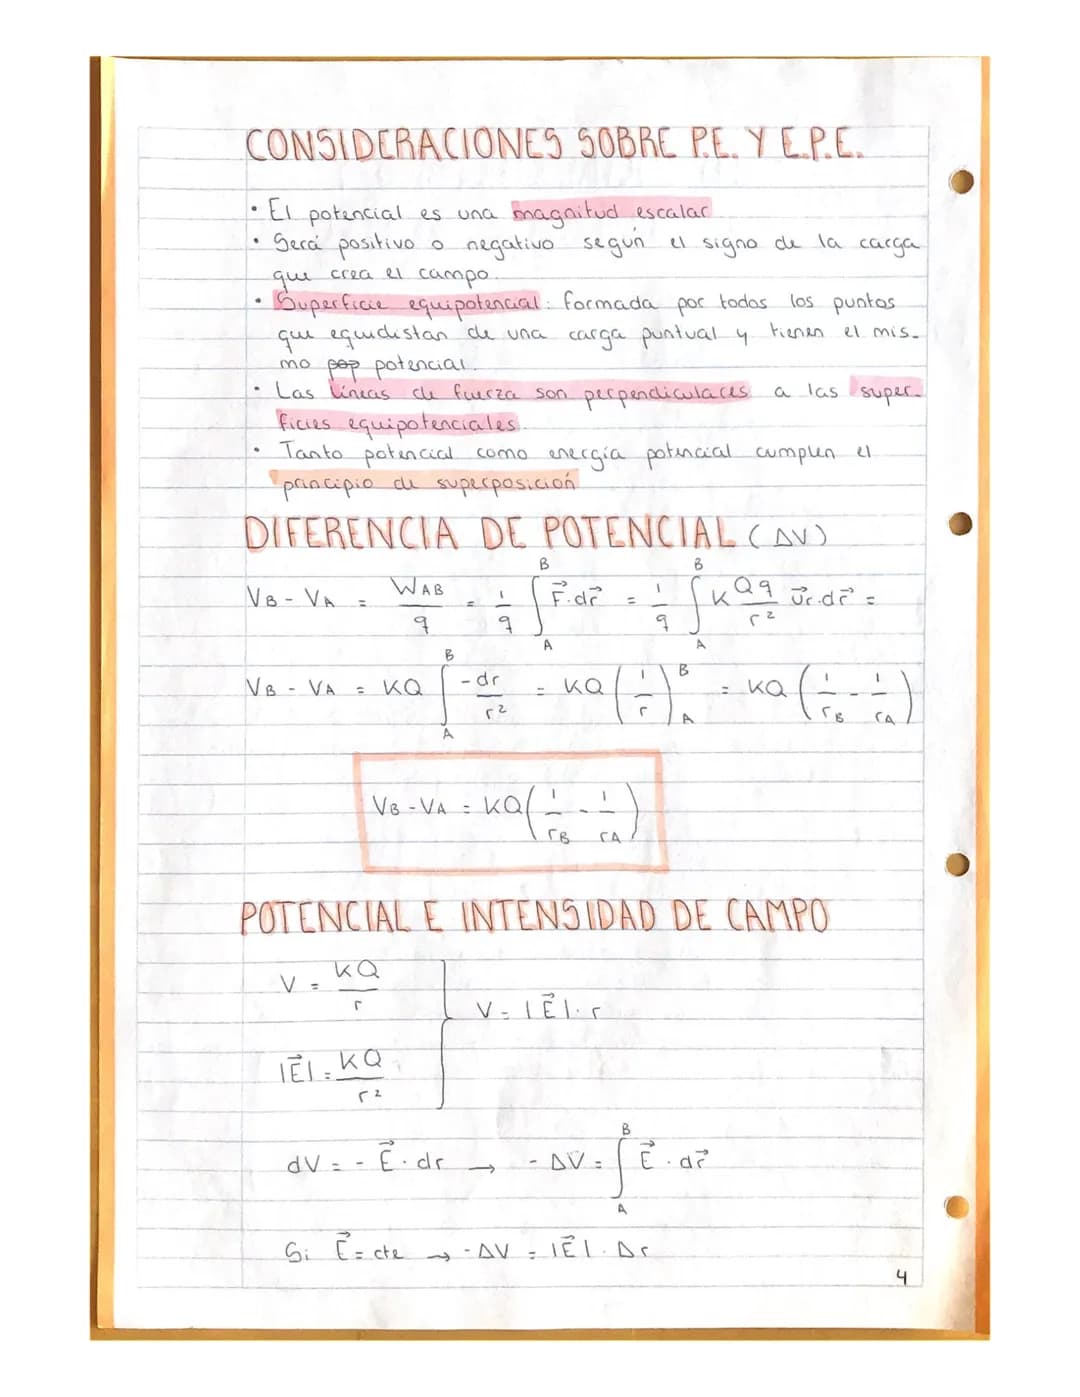 CONSIDERACIONES SOBRE P.E. Y E.P.E.
• El potencial es una magnitud escalar.
• Será positivo o negativo según el signo de la carga
que crea el campo.
• Superficie equipotencial: formada por todos los puntos
que equidistan de una carga puntual y tienen el mis-
mo pop potencial.
• Las líneas de fuerza son perpendiculares a las super-
ficies equipotenciales.
• Tanto potencial como energía potencial cumplen el
principio de superposición
DIFERENCIA DE POTENCIAL (ΔV)
V_B - V_A = W_AB/q = 1/q ∫_A^B F⃗·dr⃗ = 1/q ∫_A^B K Qq/r² u⃗r·dr⃗ =
V_B - V_A = KQ ∫_A^B -dr/r² = KQ (1/r)_A^B = KQ (1/r_B - 1/r_A)
V_B - V_A = KQ (1/r_B - 1/r_A)
POTENCIAL E INTENSIDAD DE CAMPO
V = KQ/r
V = |E⃗|·r
|E⃗| = KQ/r²
dV = - E⃗·dr → - ΔV = ∫_A^B E⃗·dr⃗
Si E⃗ = cte → -ΔV = |E⃗|·Δr
4